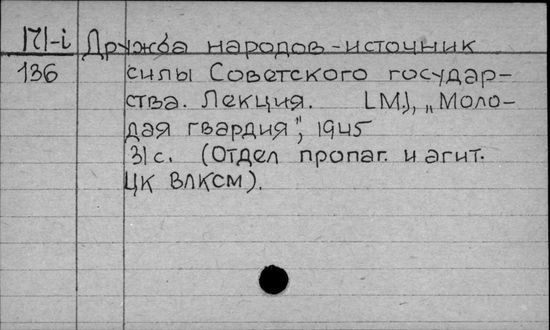 171-i Дружба народов-источник
136 силы Советского государ-
ства. Лекция. [М.], „Моло-
дая гвардия", 1945
31 с. (Отдел пропаг. и агит.
ЦК ВЛКСМ).